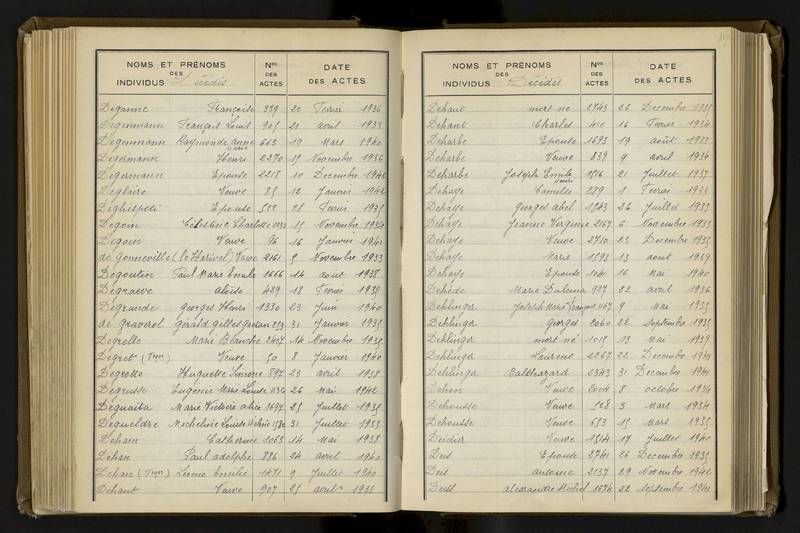 NOMS ET PRÉNOMS Nos DATE
DES DES
INDIVIDUS Décédés ACTES DES ACTES
Deganne Françoise 379 20 Février 1936
Degenmann François Louis 905 21 avril 1933
Degenmann Raymonde anne Marie 663 19 Mars 1940
Degermann Henri 2270 15 Novembre 1936
Degermann Epouse 2218 10 Decembre 1942
Deglaire Veuve 85 12 Janvier 1942
Deghispeti Epouse 500 28 Février 1935
Degoin Célestine Charlotte 15 Novembre 1934
Degoin Veuve 96 16 Janvier 1941
de Gonneville (le Harivel) Veuve 2161 5 Novembre 1933
Degoutin Paul Marie Emile 1666 14 août 1938
Degraeve aloïse 429 18 Février 1938
Degrande georges Henri 1330 23 Juin 1940
de Graverol gérald gilles 31 Janvier 1935
Degrelle Marie Blanche 2407 14 Novembre 1935
Degret Veuve 50 8 Janvier 1940
Degrotte Huguette Simone 897 23 avril 1938
Degrusse Eugénie Marie Louise 1136 26 Mai 1942
Deguaita Marie Victoire 1697 25 Juillet 1935
Degueldre Micheline Louise 31 Juillet 1933
Deham Catherine 1063 14 Mai 1938
Dehan Paul adolphe 886 24 avril 1940
Dehan Leonie Emilie 1471 9 Juillet 1940
Dehant Veuve 907 25 avril 1935
NOMS ET PRÉNOMS Nos DATE
DES DES
INDIVIDUS Décédés ACTES DES ACTES
Dehant mort né 2743 26 Decembre 1935
Dehant Charles 410 16 Février 1934
Deharbe Epouse 1693 19 août 1933
Deharbe Veuve 839 9 avril 1934
Deharbe Joseph Emile 1516 21 Juillet 1937
Dehaye Camille 289 1 Février 1933
Dehaye georges abel 1543 26 Juillet 1933
Dehaye Jeanne Virginie 2167 6 Novembre 1933
Dehaye Veuve 2710 23 Decembre 1935
Dehaye Marie 1593 13 août 1939
Dehaye Epouse 1041 16 Mai 1940
Dehède Marie 927 22 avril 1936
Dehlinger Joseph Marie François 1167 9 Mai 1935
Dehlinger georges 2060 22 Septembre 1935
Dehlinger mort né 1015 13 Mai 1939
Dehlinger Laurent 2267 22 Decembre 1941
Dehlinger Balthazard 2343 31 Decembre 1941
Dehon Veuve 2004 8 octobre 1934
Dehousse Veuve 508 3 Mars 1934
Dehousse Veuve 653 15 Mars 1935
Deidier Veuve 1514 17 Juillet 1940
Deis Epouse 2741 26 Decembre 1935
Deis antoine 2137 29 Novembre 1942
Deiss alexandre Michel 1674 22 Septembre 1941